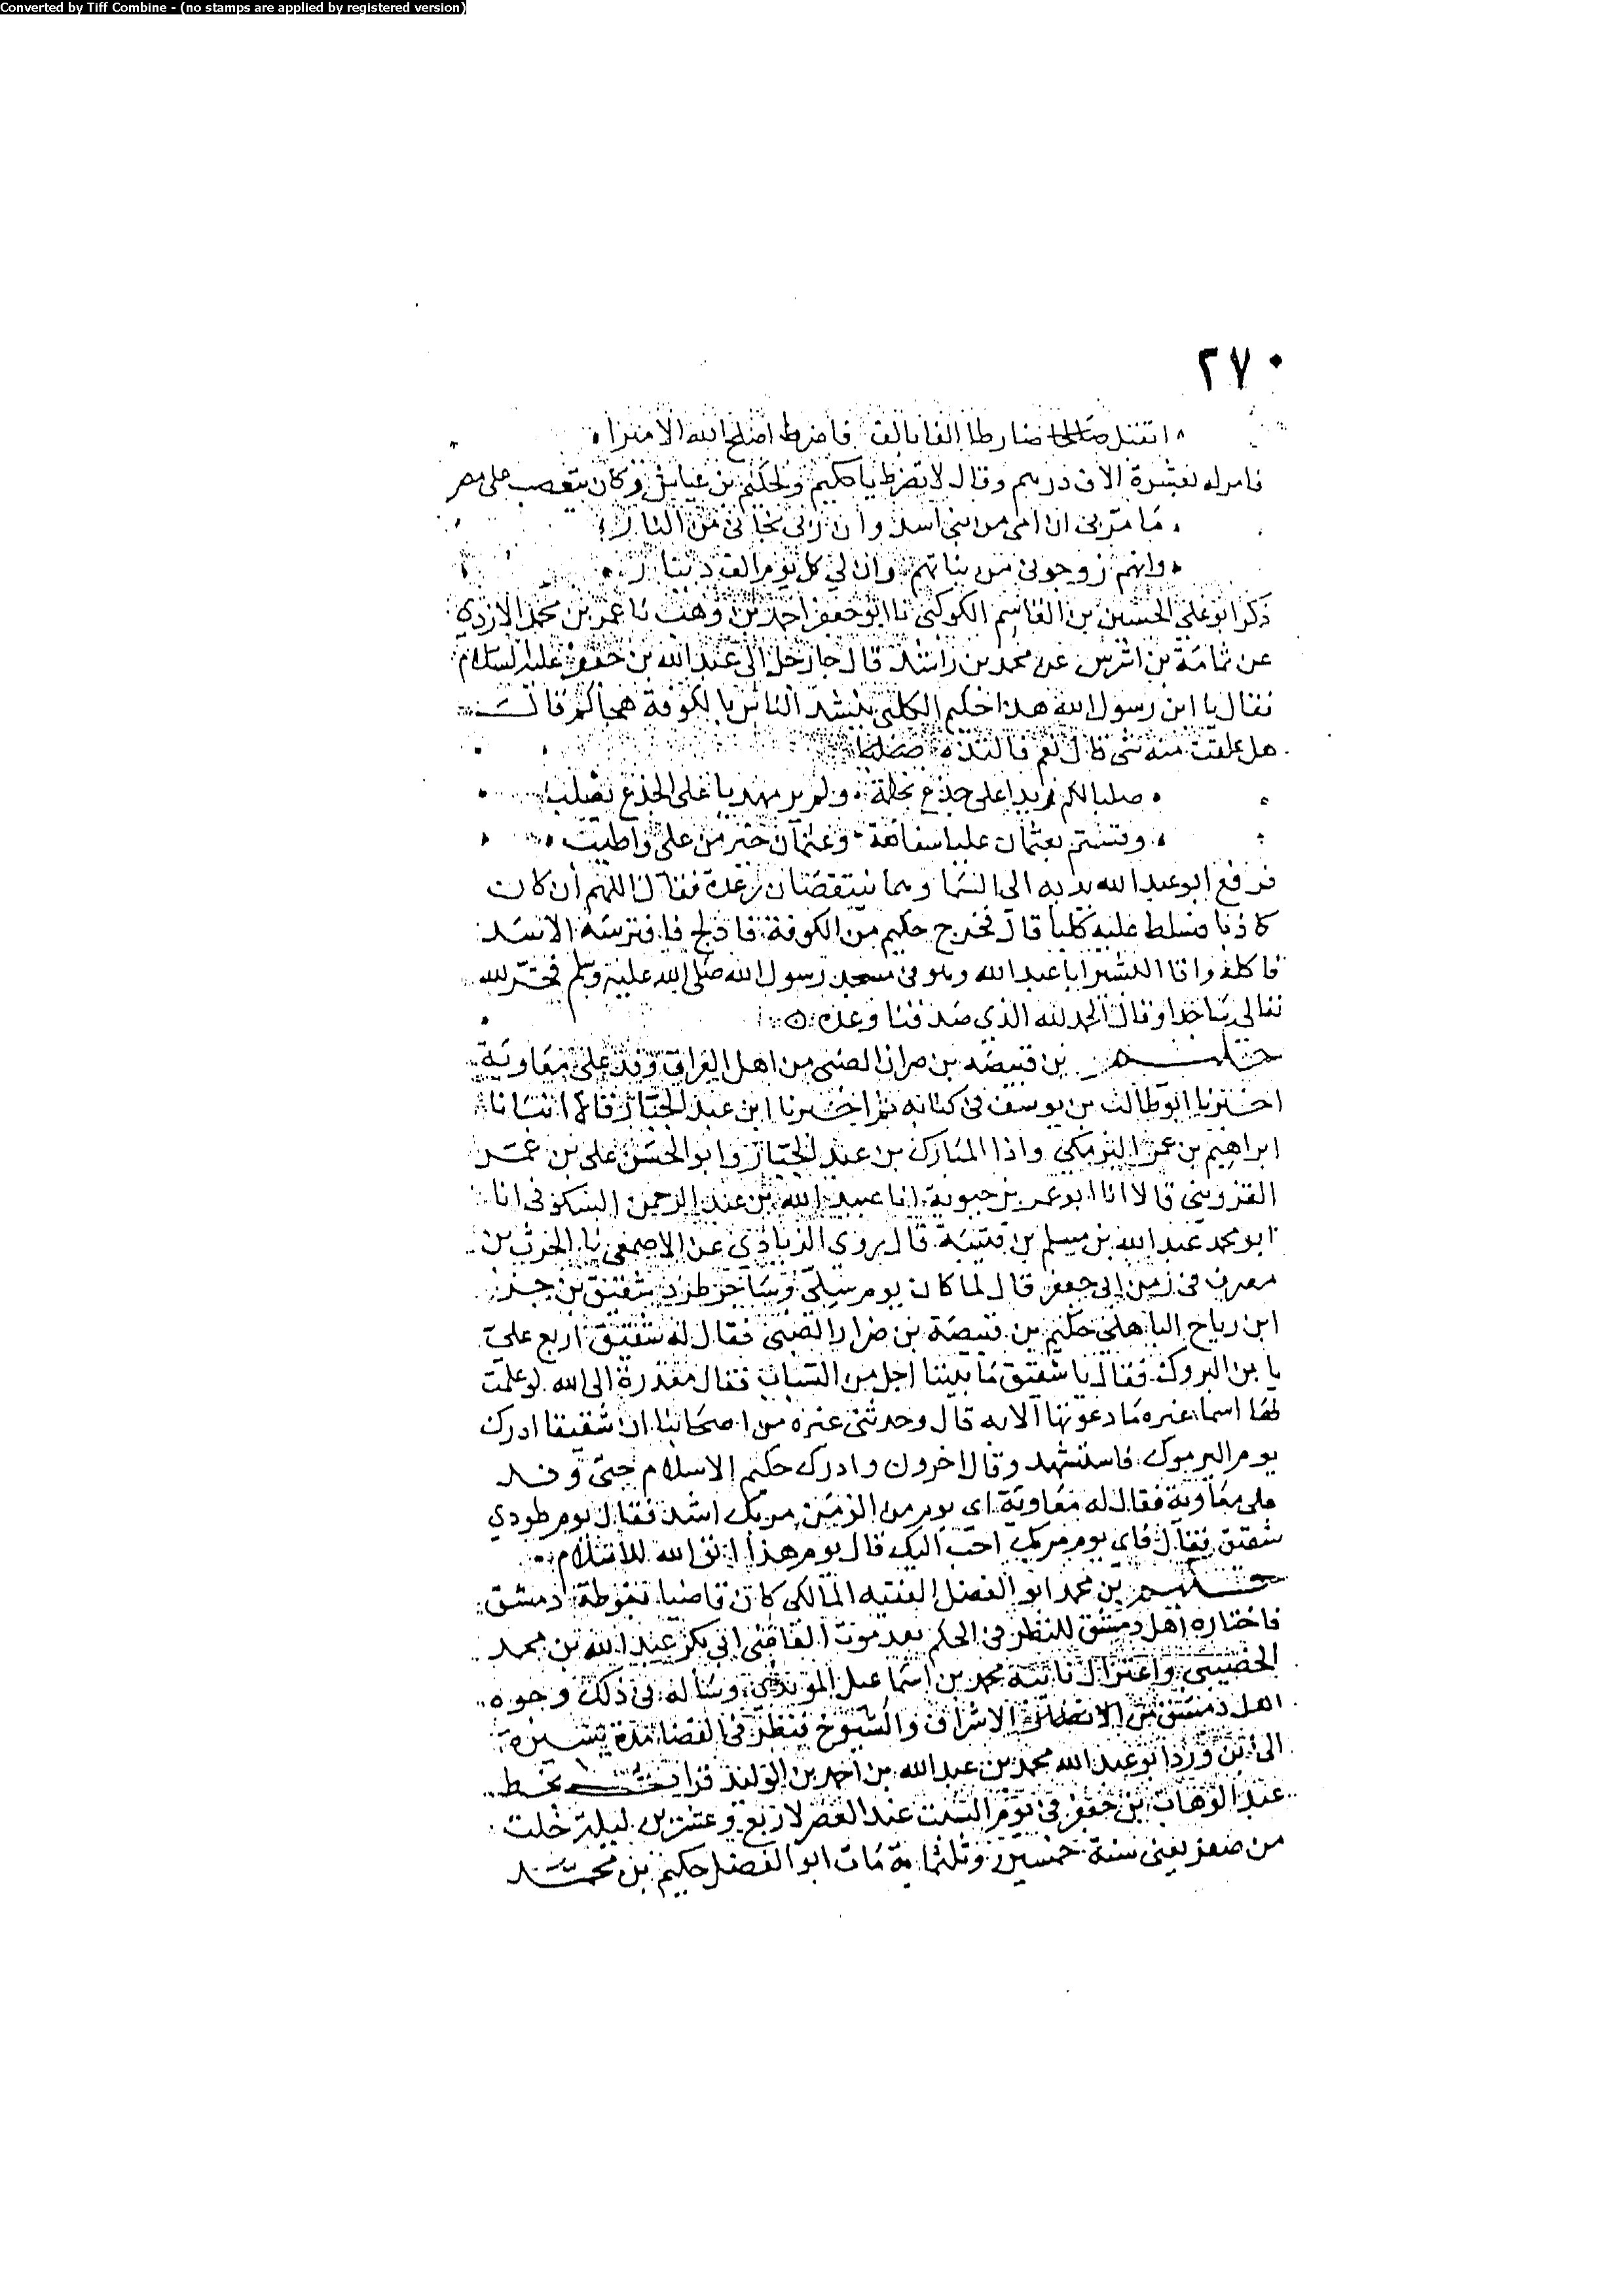 Converted by Tiff Combine - (no stamps are applied by registered version)
٢٧٠
ضارطا الفا بالف فاضرط اصلح الله الامير
فامر له بعشرة الاف درهم وقال لا تضرط يا حكيم ولحكيم بن عياش وكان يتعصب على مضر
ما سرني ان امي من بني اسد وان ربي نجاني من النار
وانهم زوجوني من بناتهم وان لي كل يوم الف دينار
ذكر ابو علي الحسين بن القاسم الكوكبي نا ابو جعفر احمد بن وهب نا عمر بن محمد الازدي
عن ثمامة بن اشرس عن محمد بن راشد قال جا رجل الى عبد الله بن جعفر عليه السلام
فقال يا ابن رسول الله هذا حكيم الكلبي ينشد الناس بالكوفة هجاكم قال
هل علقت منه شي قال نعم فانشده
صلبنا لكم زيدا على جذع نخلة ولم نر مهديا على الجذع يصلب
وقستم بعثمان عليا سفاهة وعثمان خير من علي واطيب
فرفع ابو عبد الله يديه الى السما وهما ينتفضان رعدة فقال اللهم ان كان
كاذبا فسلط عليه كلبا قال فخرج حكيم من الكوفة فادلج فافترسه الاسد
فاكله واتا البشير ابا عبد الله وهو في مسجد رسول الله صلى الله عليه وسلم فخر لله
تعالى ساجدا وقال الحمد لله الذي صدقنا وعده
حكيم بن قبيصه بن ضرار الضبي من اهل العراق وفد على معاوية
اخبرنا ابو طالب بن يوسف في كتابه ثم اخبرنا ابن عبد الجبار قالا انبانا
ابراهيم بن عمر البرمكي واذا المبارك بن عبد الجبار وابو الحسن علي بن عمر
القزويني قالا انا ابو عمر بن حيوية انا عبيد الله بن عبد الرحمن السكوني انا
ابو محمد عبد الله بن مسلم بن قتيبة قال يروي الزيادي عن الاصمعي نا الحرث بن
مصرف في زمن ابي جعفر قال لما كان يوم سلي وساجر طرد شقيق بن جز
ابن رياح الباهلي حكيم بن قبيصة بن ضرار الضبي فقال له شقيق اربع علي
يا بن البروك فقال يا شقيق ما بيننا اجل من السباب فقال معذرة الى الله لو علمت
لها اسما غيره ما دعوتها الا به قال وحدثني غيره من اصحابنا ان شقيقا ادرك
يوم اليرموك فاستشهد وقال اخرون وادرك حكيم الاسلام حتى وفد
على معاوية فقال له معاوية اي يوم من الزمن مر بك اشد فقال يوم طردي
شقيق فقال فاي يوم مر بك احب اليك قال يوم هداني الله للاسلام
حكيم بن محمد ابو الفضل الفقيه المالكي كان قاضيا بغوطة دمشق
فاختاره اهل دمشق للنظر في الحكم بعد موت القاضي ابي بكر عبد الله بن محمد
الخصيبي واعتزال نائبه محمد بن اسماعيل وساله في ذلك وجوه
اهل دمشق من الاشراف والشيوخ فنظر في القضا مدة يسيرة
الى ان ورد ابو عبد الله محمد بن عبد الله بن احمد بن الوليد قرات بخط
عبد الوهاب بن جعفر في يوم السبت عند العصر لاربع وعشرين ليلة خلت
من صفر يعني سنة خمسين وثلثماية مات ابو الفضل حكيم بن محمد